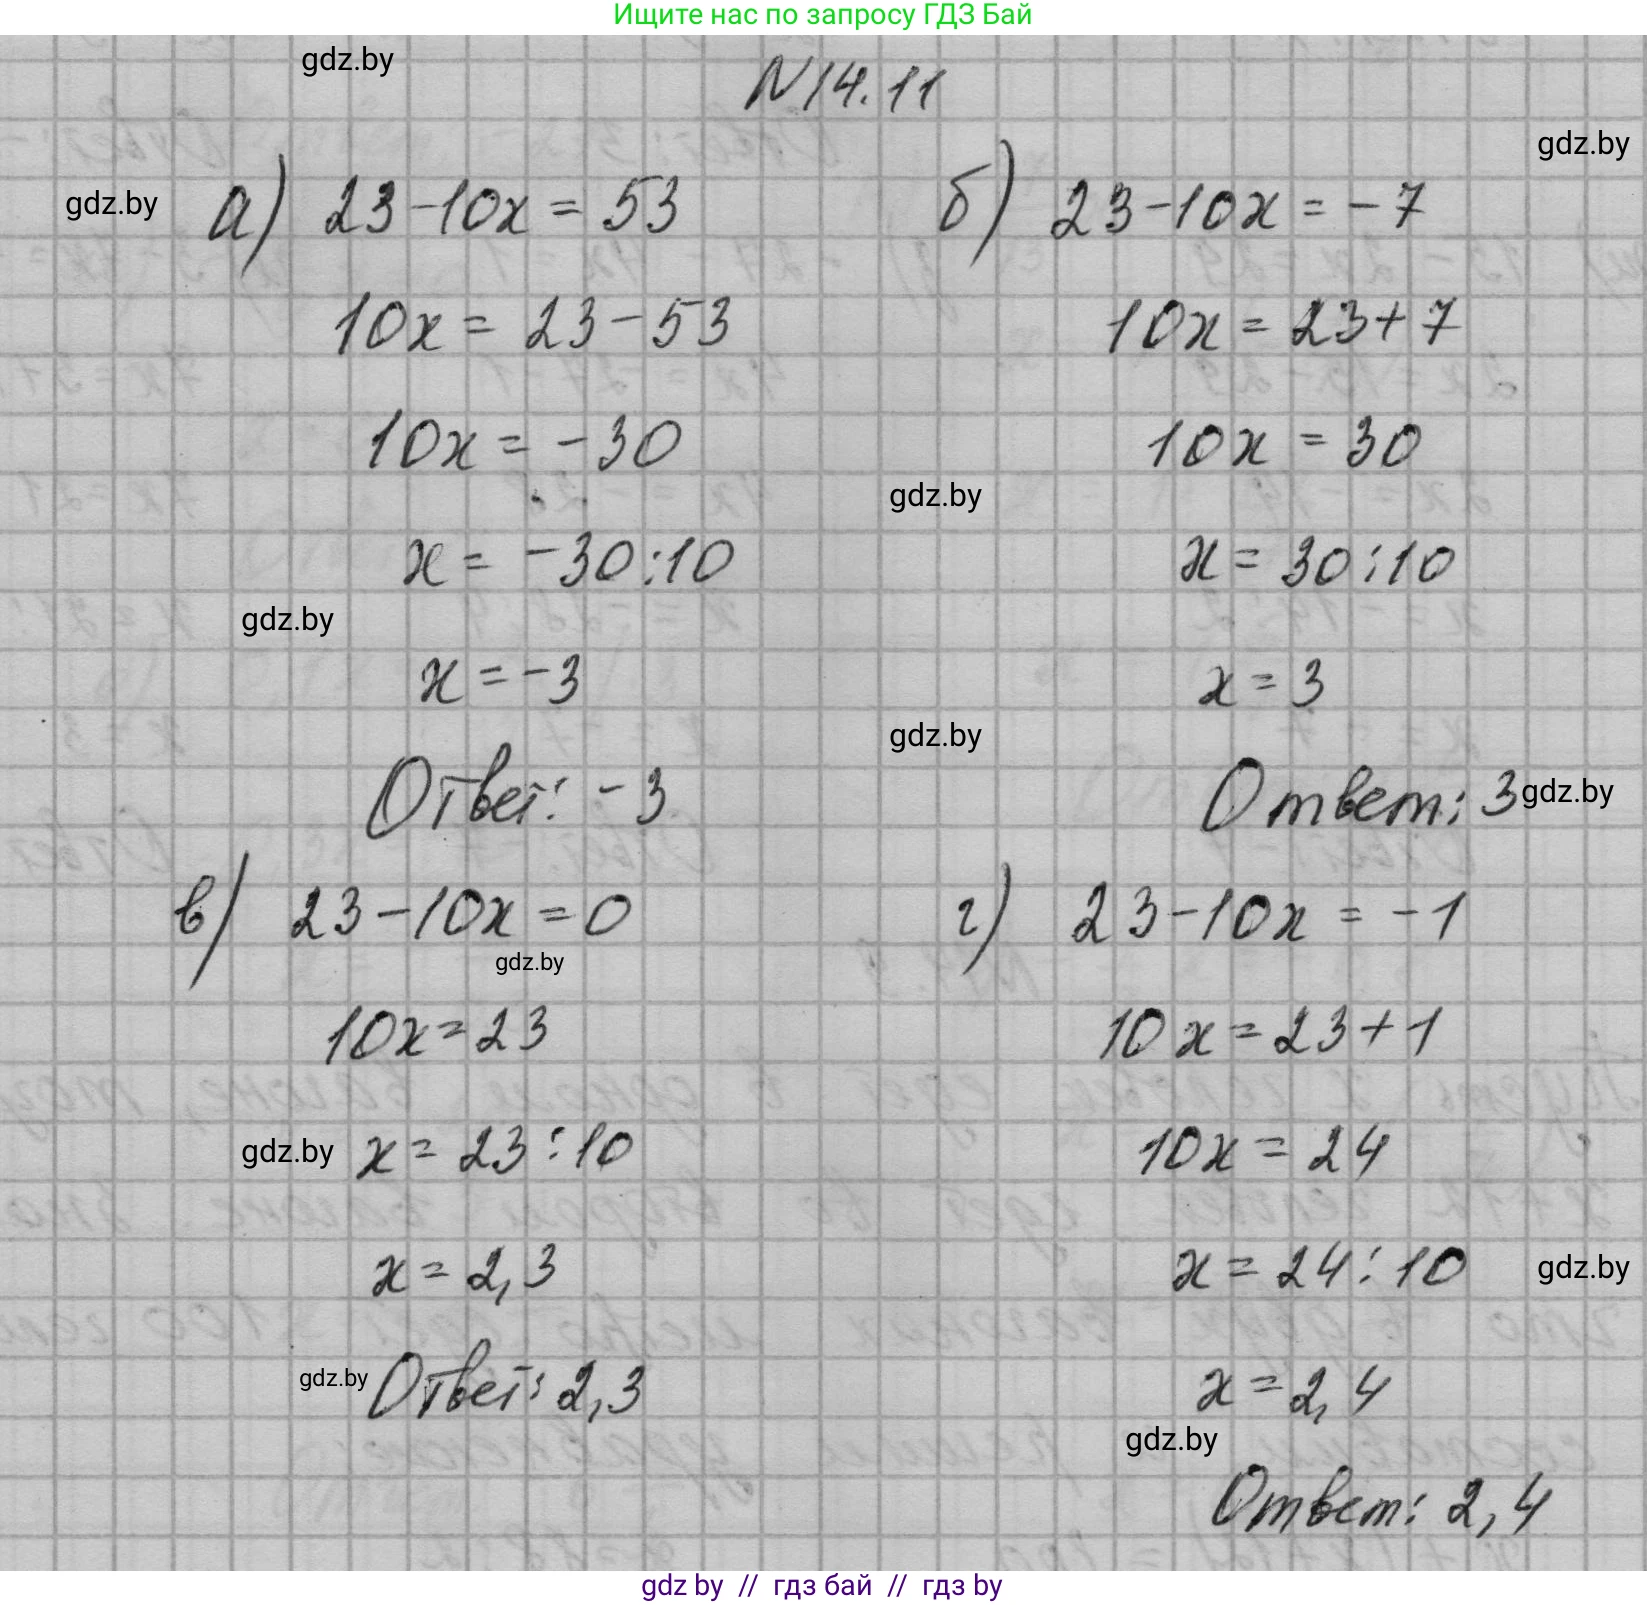 Ищите нас по запросу ГДЗ Бай
gdz.by
N14.11
gdz.by
gdz.by
а) 23-10x = 53
10x = 23-53
10x = -30
x = -30:10
gdz.by
x = -3
Ответ: -3
б) 23-10x = -7
10x = 23+7
10x = 30
gdz.by
x = 30:10
x = 3
gdz.by
Ответ: 3
gdz.by
в) 23-10x = 0
gdz.by
10x = 23
gdz.by
x = 23:10
x = 2,3
gdz.by
Ответ: 2,3
г) 23-10x = -1
10x = 23+1
10x = 24
x = 24:10
gdz.by
x = 2,4
gdz.by
Ответ: 2,4
gdz by // гдз бай // гдз by